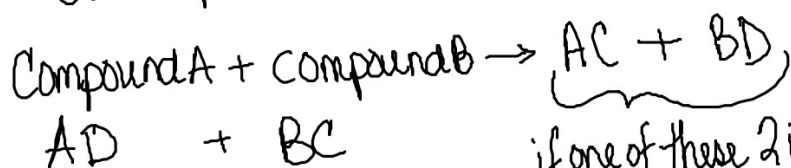 CompoundA + compoundB → AC + BD
AD + BC if one of these 2 i